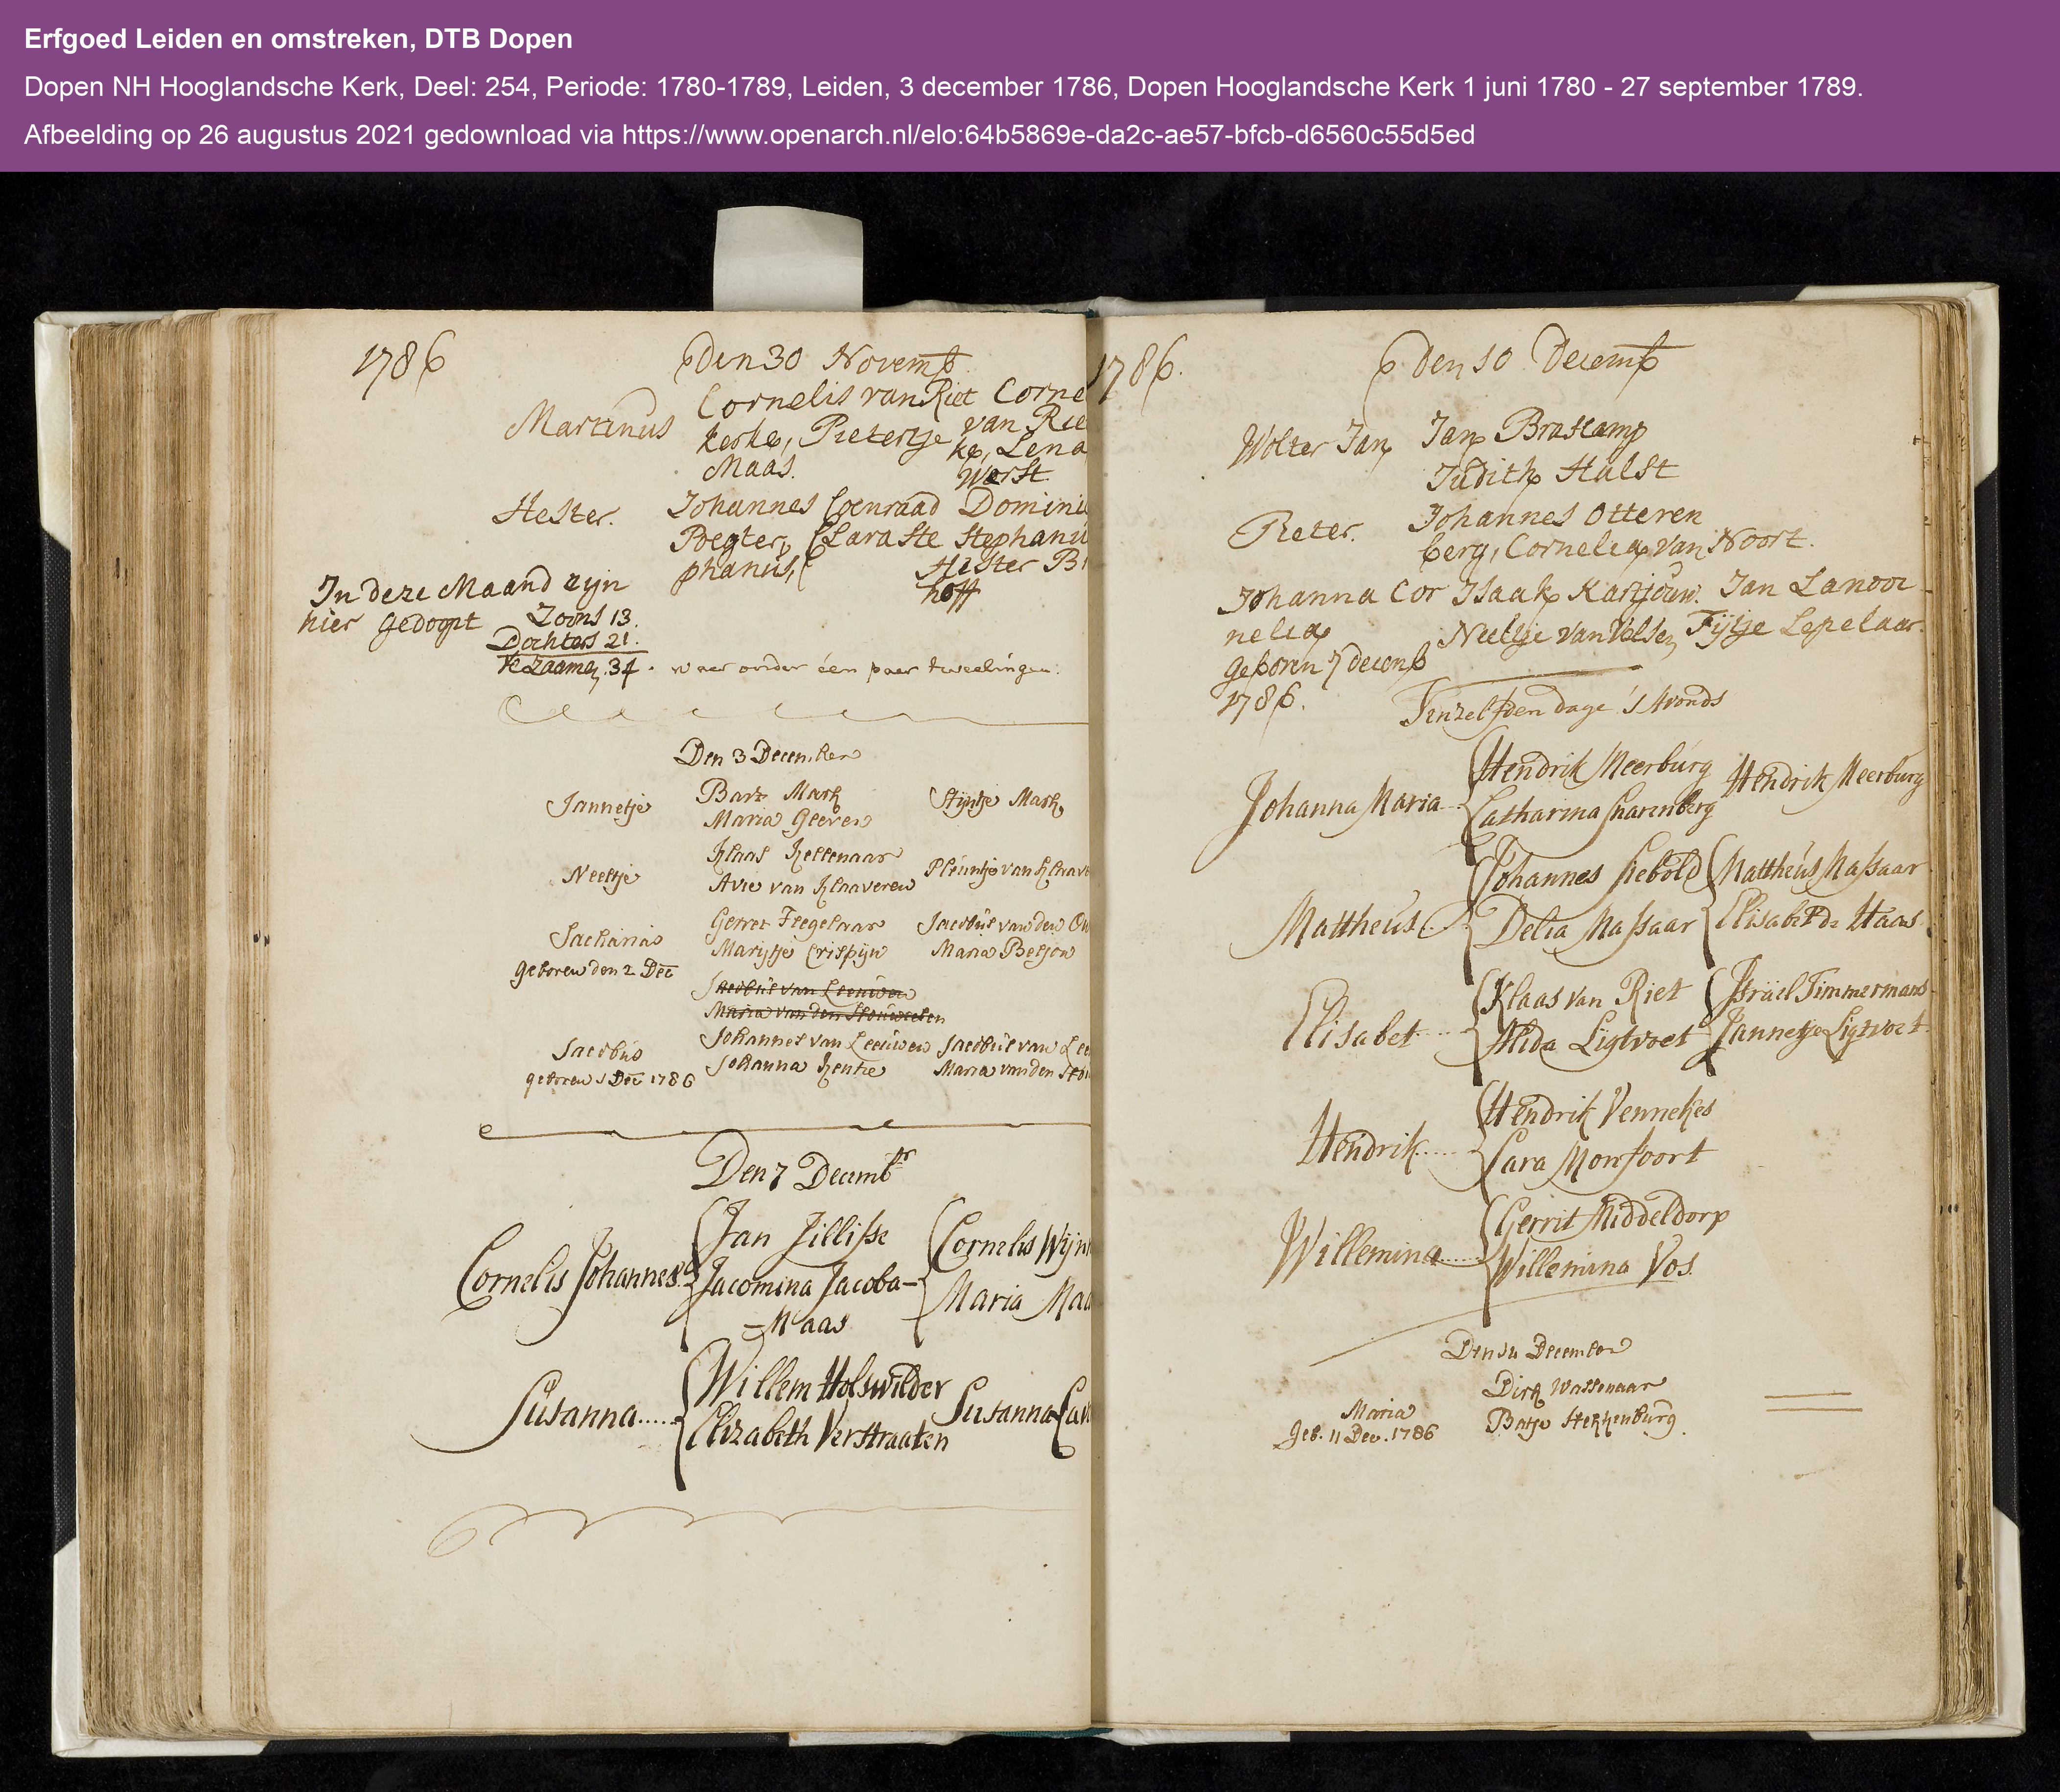 Erfgoed Leiden en omstreken, DTB Dopen
Dopen NH Hooglandsche Kerk, Deel: 254, Periode: 1780-1789, Leiden, 3 december 1786, Dopen Hooglandsche Kerk 1 juni 1780 - 27 september 1789.
Afbeelding op 26 augustus 2021 gedownload via https://www.openarch.nl/elo:64b5869e-da2c-ae57-bfcb-d6560c55d5ed
1786 Den 30 Novemb
Martinus Cornelis van Riet Corne
kerke, Pietertje van Rie
Maas. ke, Lena
Werst
Hester. Johannes Coenraad Domini
Pegter, Clara Ste Stephanu
phanus, Hester B
hoff
In deze Maand zijn
hier gedoopt Zoons 13.
Dochters 21.
te zaamen 34. waer onder één paer tweelingen.
Den 3 December
Jannetje Bart Mark Stijntje Mark
Maria Geeren
Neeltje Klaas Kellenaar Pleuntje van Klaave
Avie van Klaaveren
Sacharias Gerret Flegelaar Jacobus van den O
Geboren den 2 Dec Marijtje Crispijn Maria Betjon
Jacobus van Leeuwen
Maria van den
Jacobus Johannes van Leeuwen Jacobus van Lee
geboren 1 Dec 1786 Johanna Maria van den
Den 7 Decembr
Cornelis Johannes Jan Jillisse Cornelis Wijn
Jacomina Jacoba- Maria Maa
-Maas
Susanna..... Willem Holswilder Susanna
Elizabeth Verstraaten
1786. Den 10 Decemb
Wolter Jan Jan Brastamp
Judith Halst
Pieter. Johannes Otteren
berg, Cornelia van Noort.
Johanna Cor Isaak Karjouw. Jan Lanooi
nelia Neeltje van Velsen Fijtje Lepelaar.
geboren 7 decemb
1786.
Tenzelfden dage 's Avonds
Johanna Maria Hendrik Meerburg Hendrik Meerburg
Catharina Charenberg
Mattheus Johannes Siebold Mattheus Massaar
Delia Massaar Elisabet de Haas
Elisabet.... Klaas van Riet Israël Timmermans
Alida Ligtvoet Jannetje Ligtvoet
Hendrik..... Hendrik Vennekes
Sara Monfoort
Willemina..... Gerrit Middeldorp
Willemina Vos.
Den 14 December
Maria Dirk Wassenaar
Geb. 11 Dec. 1786 Batje Stekkenburg.